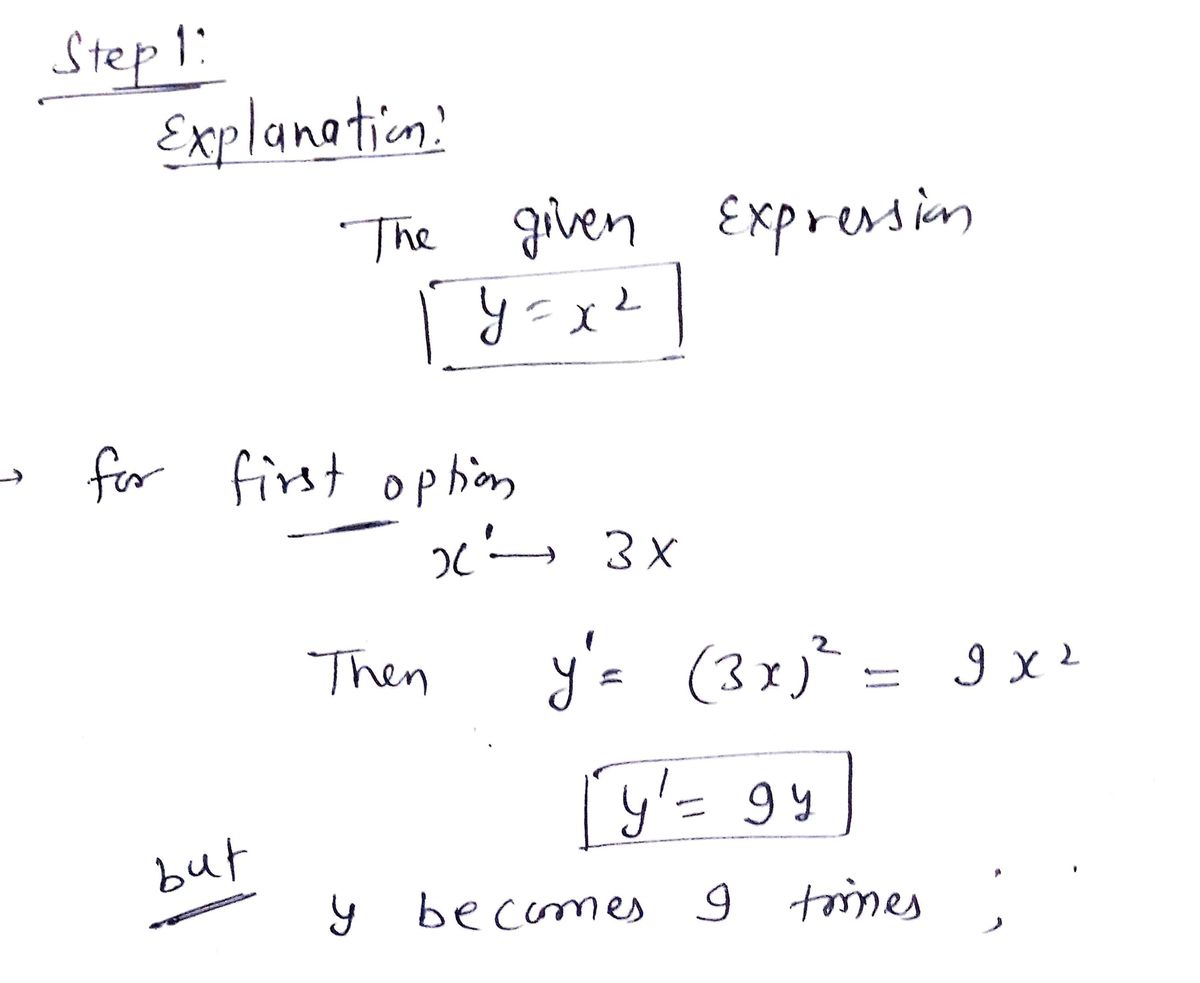 Step 1:
Explanation:
The given Expression
y = x²
→ for first option
x' → 3x
Then y' = (3x)² = 9x²
y' = 9y
but
y becomes 9 times ;